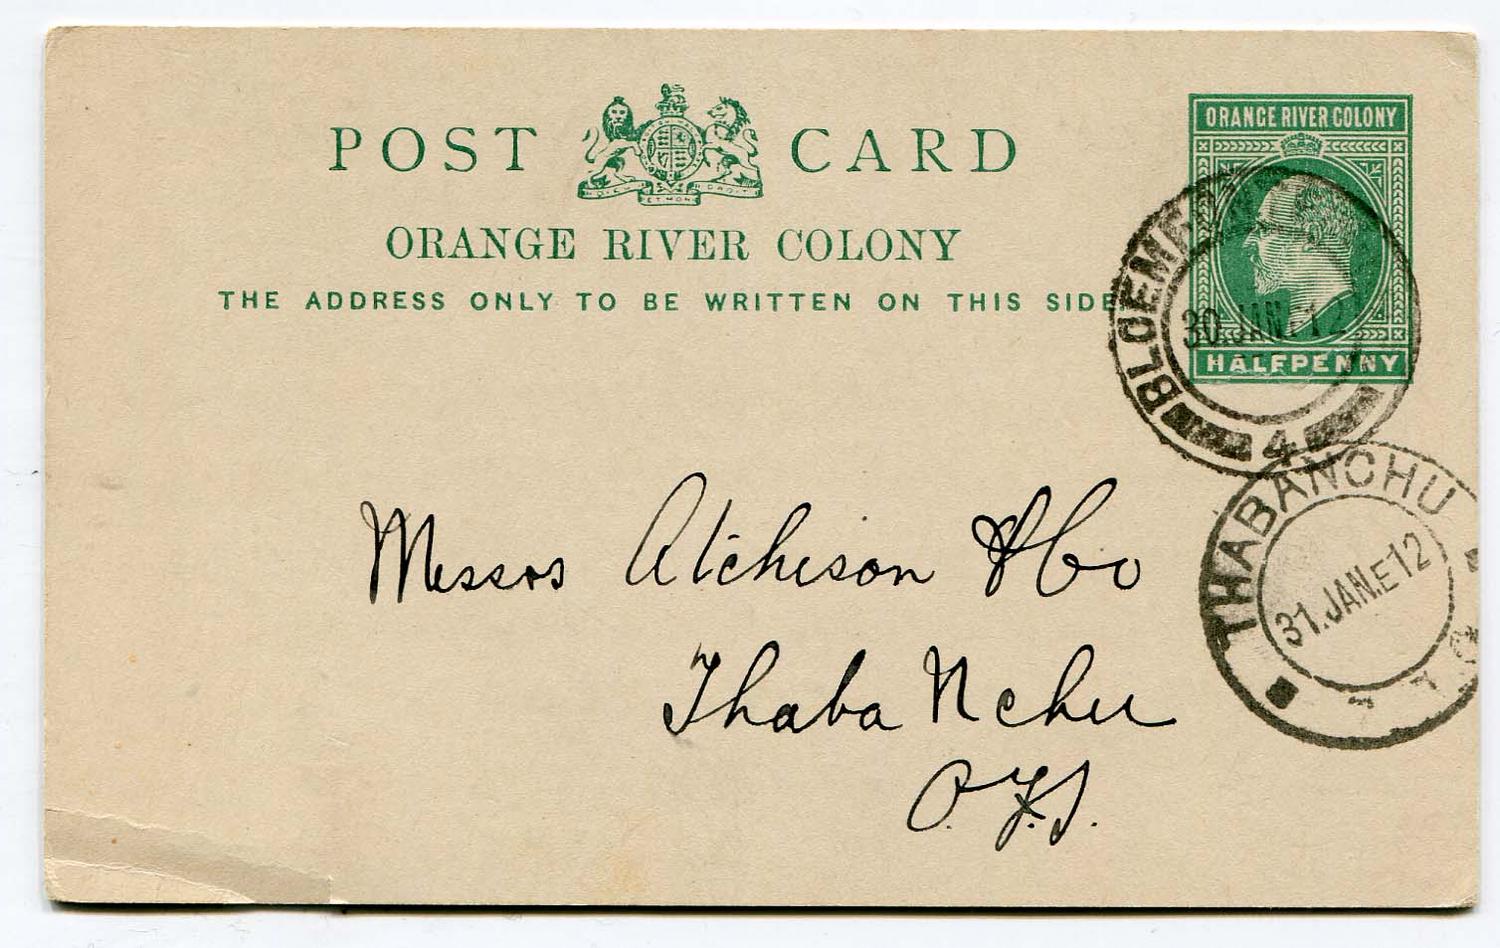 POST CARD
ORANGE RIVER COLONY
THE ADDRESS ONLY TO BE WRITTEN ON THIS SIDE
ORANGE RIVER COLONY
HALFPENNY
30.JAN.E12
4
THABANCHU
31.JAN.E12
Messrs Atcheson & Co
Thaba Nchu
O.F.S.